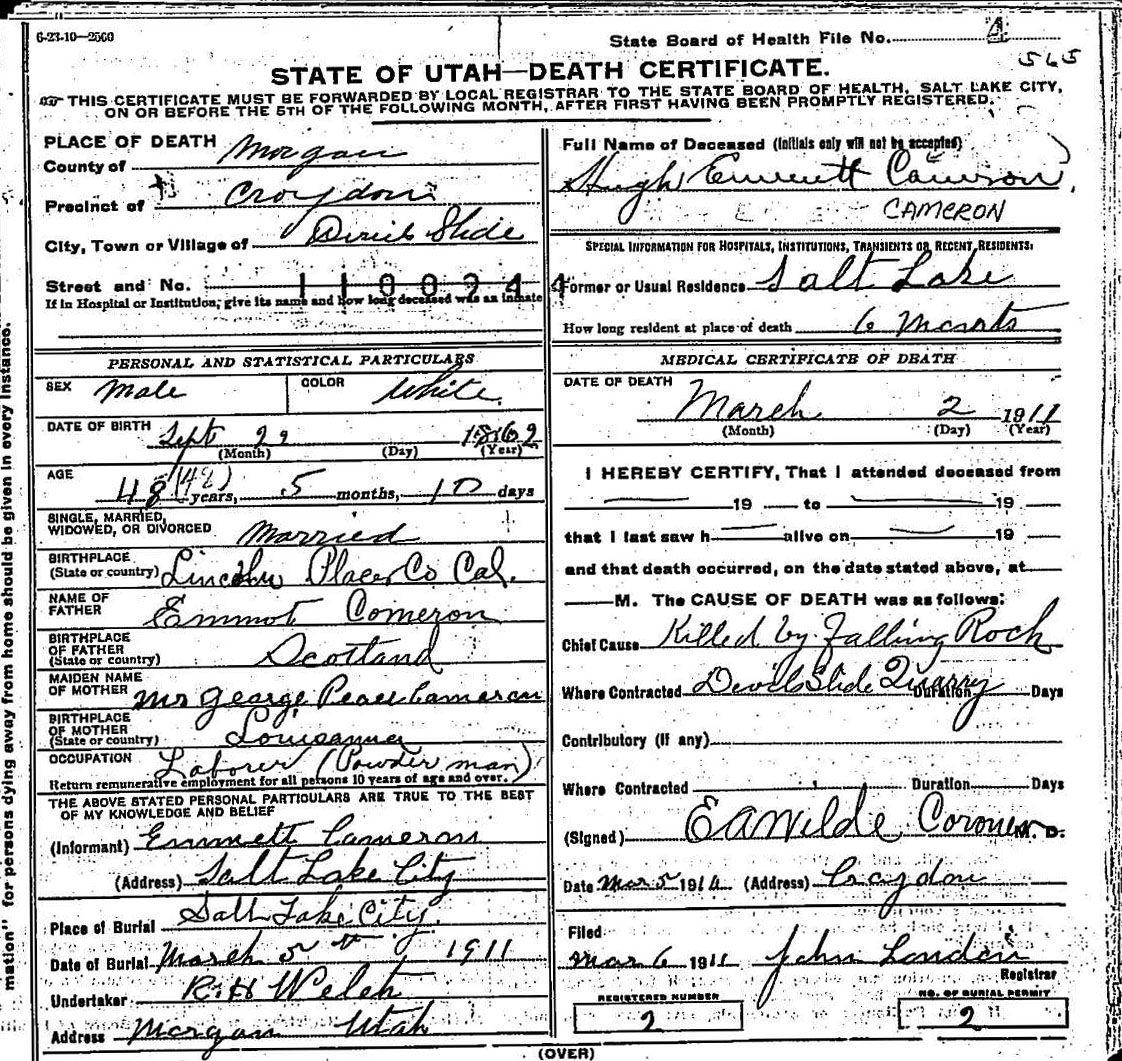 6-23-10—2500
State Board of Health File No. 4
565
STATE OF UTAH—DEATH CERTIFICATE.
THIS CERTIFICATE MUST BE FORWARDED BY LOCAL REGISTRAR TO THE STATE BOARD OF HEALTH, SALT LAKE CITY,
ON OR BEFORE THE 5TH OF THE FOLLOWING MONTH, AFTER FIRST HAVING BEEN PROMPTLY REGISTERED.
PLACE OF DEATH
County of Morgan
Precinct of Croydon
City, Town or Village of Devil Slide
Street and No. 1100244
If in Hospital or Institution, give its name and how long deceased was an inmate
Full Name of Deceased (Initials only will not be accepted)
Hugh Emmett Cameron
CAMERON
SPECIAL INFORMATION FOR HOSPITALS, INSTITUTIONS, TRANSIENTS OR RECENT RESIDENTS:
Former or Usual Residence Salt Lake
How long resident at place of death 6
PERSONAL AND STATISTICAL PARTICULARS
SEX Male COLOR White
DATE OF BIRTH Sept 22 1862
(Month) (Day) (Year)
AGE 48 (48) years, 5 months, 10 days
SINGLE, MARRIED,
WIDOWED, OR DIVORCED Married
BIRTHPLACE
(State or country) Lincoln Placer Co Cal.
NAME OF
FATHER Emmot Comeron
BIRTHPLACE
OF FATHER
(State or country) Scotland
MAIDEN NAME
OF MOTHER George Cameron
BIRTHPLACE
OF MOTHER
(State or country) Louisanna
OCCUPATION Laborer (Powder man)
Return remunerative employment for all persons 10 years of age and over.
THE ABOVE STATED PERSONAL PARTICULARS ARE TRUE TO THE BEST
OF MY KNOWLEDGE AND BELIEF
(Informant) Emmett Cameron
(Address) Salt Lake City
Place of Burial Salt Lake City.
Date of Burial March 5th 1911
Undertaker Welch
Address Morgan Utah
MEDICAL CERTIFICATE OF DEATH
DATE OF DEATH
March 2 1911
(Month) (Day) (Year)
I HEREBY CERTIFY, That I attended deceased from
19 to 19
that I last saw h alive on 19
and that death occurred, on the date stated above, at
M. The CAUSE OF DEATH was as follows:
Chief Cause Killed by Falling Rock
Where Contracted Devil Slide Quarry Duration Days
Contributory (If any)
Where Contracted Duration Days
(Signed) EA Wilde Coroner M. D.
Date Mar 5 191 (Address) Croydon
Filed
Mar 6 1911 John London
Registrar
REGISTERED NUMBER
2
NO. OF BURIAL PERMIT
2
(OVER)
mation" for persons dying away from home should be given in every instance.